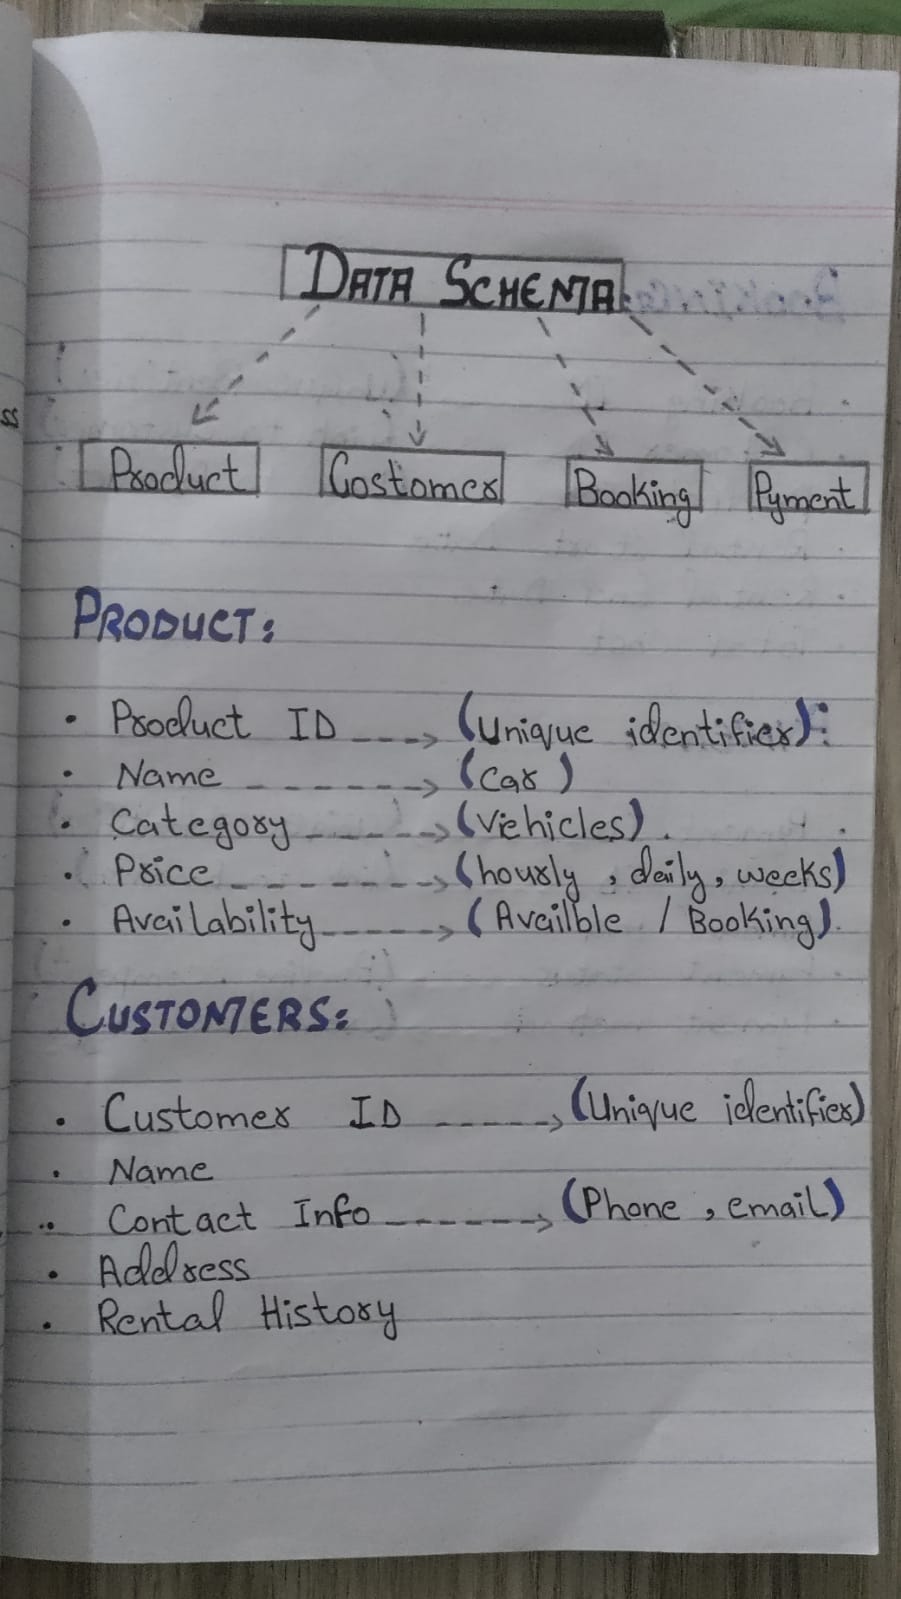 DATA SCHEMA
Product Costomer Booking Pyment
PRODUCT:
• Product ID ----> (Unique identifier):
• Name ------> (Car)
• Category -----> (Vehicles).
• Price -------> (hourly, daily, weeks)
• Availability -----> (Availble / Booking).
CUSTOMERS:
• Customer ID -----> (Unique identifier)
• Name
• Contact Info ------> (Phone, email)
• Address
• Rental History